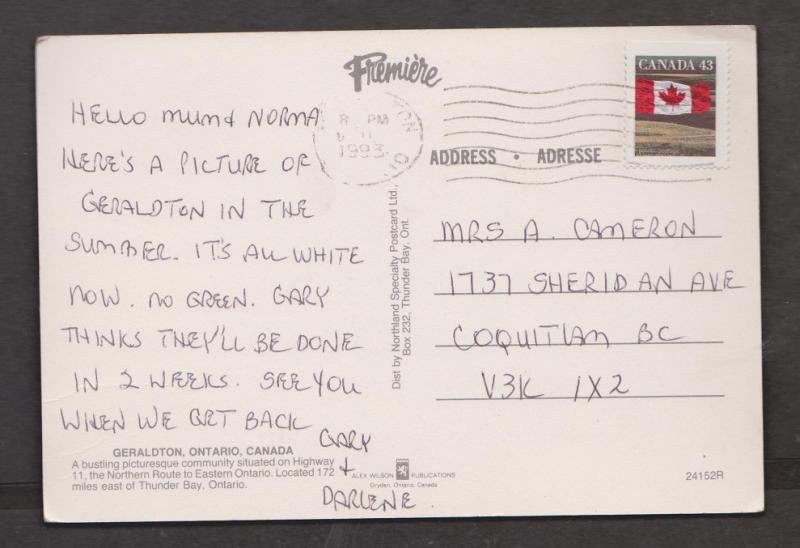 Première
CANADA 43
8 PM
1993
ADDRESS • ADRESSE
HELLO MUM & NORMA
HERE'S A PICTURE OF
GERALDTON IN THE
SUMMER. IT'S ALL WHITE
NOW. NO GREEN. GARY
THINKS THEY'LL BE DONE
IN 2 WEEKS. SEE YOU
WHEN WE GET BACK
GARY
&
DARLENE.
MRS A. CAMERON
1737 SHERIDAN AVE
COQUITLAM BC
V3K 1X2
Dist by Northland Specialty Postcard Ltd.,
Box 232, Thunder Bay, Ont.
GERALDTON, ONTARIO, CANADA
A bustling picturesque community situated on Highway
11, the Northern Route to Eastern Ontario. Located 172
miles east of Thunder Bay, Ontario.
ALEX WILSON PUBLICATIONS
Dryden, Ontario, Canada
24152R